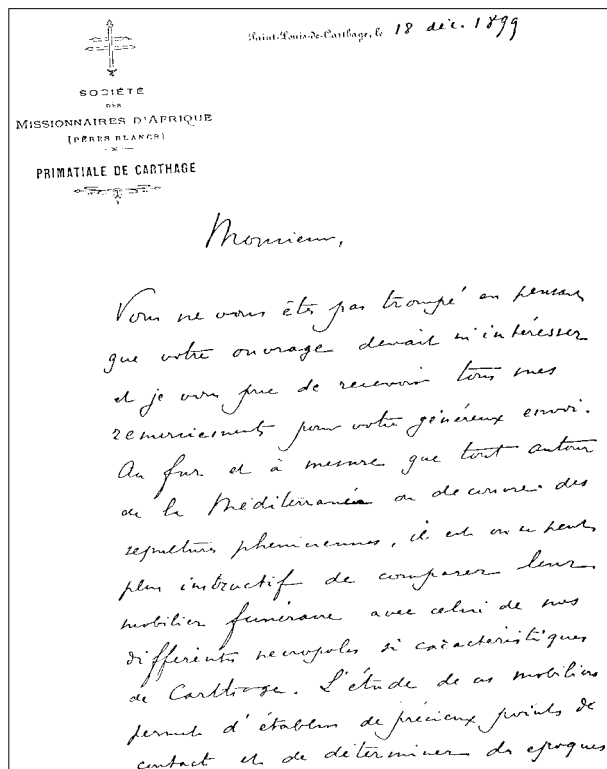 Saint-Louis-de-Carthage, le 18 déc. 1899
SOCIÉTÉ
DES
MISSIONNAIRES D'AFRIQUE
(PÈRES BLANCS)
PRIMATIALE DE CARTHAGE
Monsieur,
Vous ne vous êtes pas trompé en pensant
que votre ouvrage devait m'intéresser
et je vous prie de recevoir tous mes
remerciements pour votre généreux envoi.
Au fur et à mesure que tout autour
de la Méditerranée on découvre des
sépultures phéniciennes, il est on ne peut
plus instructif de comparer leur
mobilier funéraire avec celui de nos
différents necropoles si caractéristiques
de Carthage. L'étude de ces mobiliers
permet d'établir de précieux points de
contact et de déterminer des époques